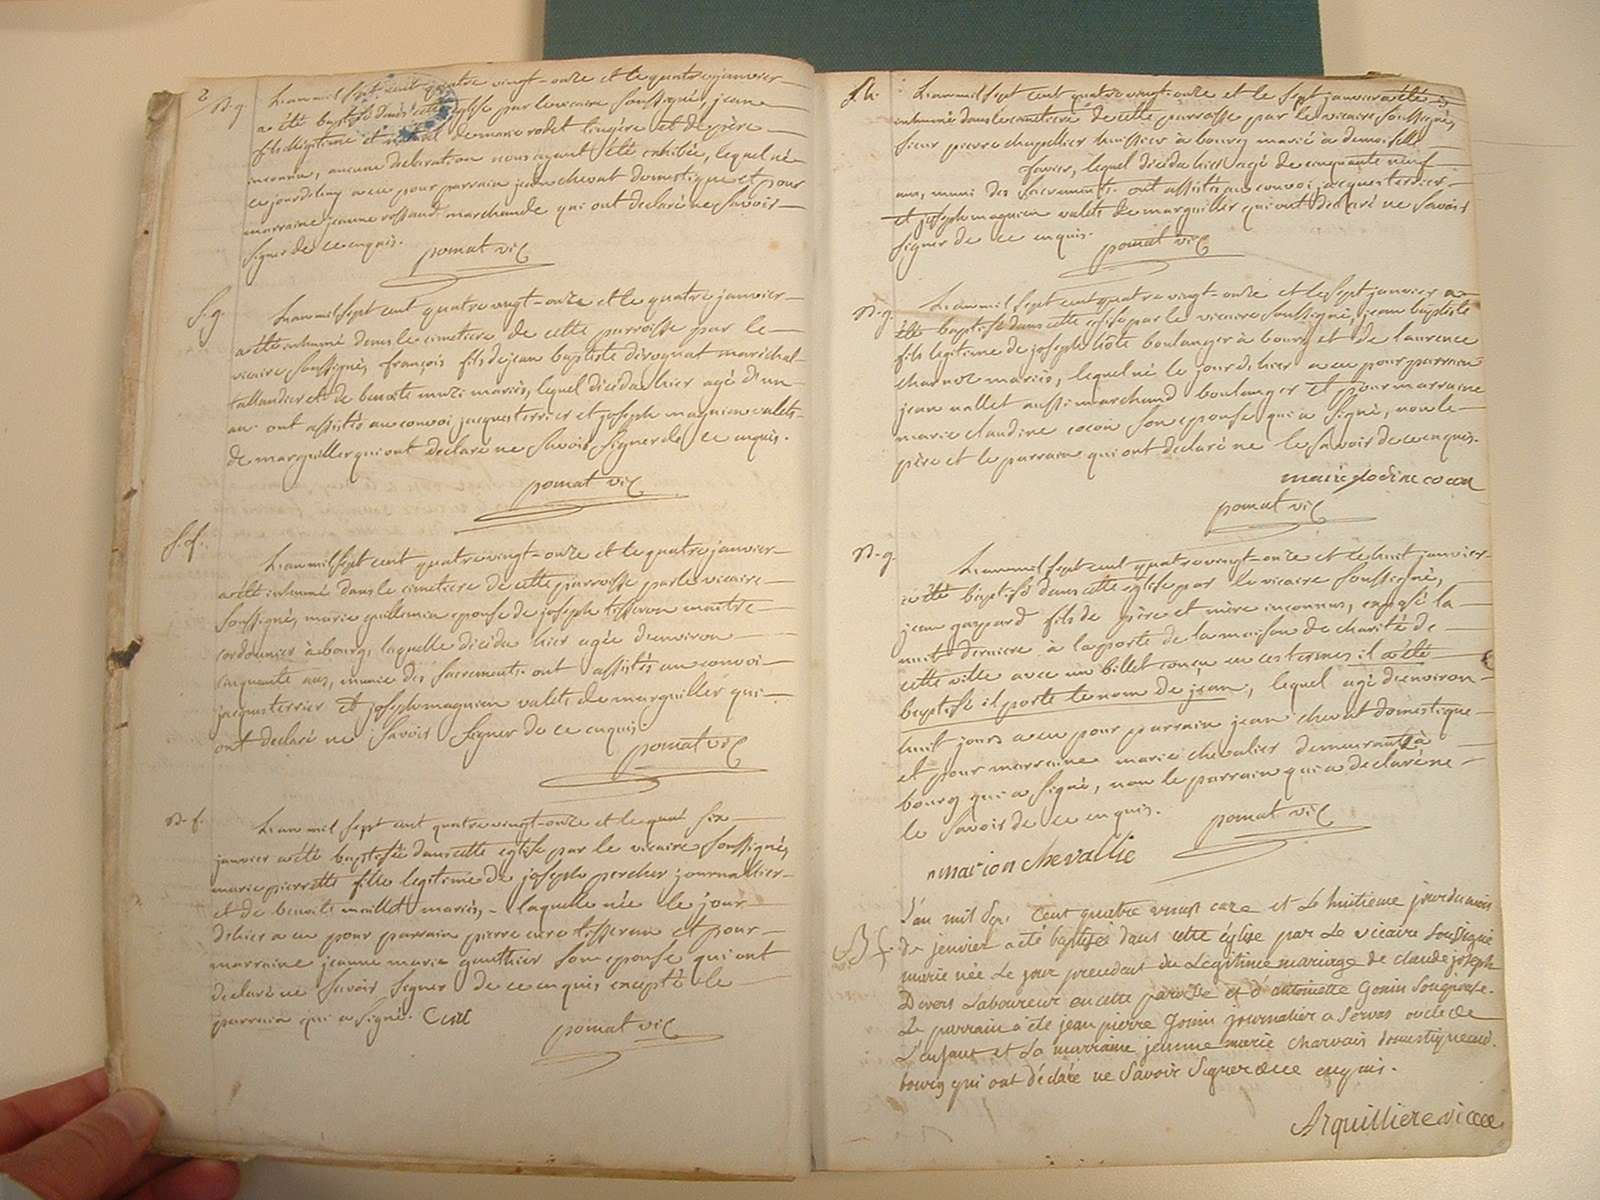 2
B. g.
L'an mil sept cent quatre vingt-onze et le quatre janvier
a été baptisé dans cette eglise par le vicaire soussigné, jean
fils illégitime et naturel de marie rodet lingère et de père
inconnu, aucune declaration nous ayant été exhibée, lequel né
ce jourd'huy a eu pour parrain jean chevat domestique et pour
marraine jeanne rossand marchande qui ont declaré ne savoir
signer de ce enquis.
pomat vic
S. g.
L'an mil sept cent quatre vingt-onze et le quatre janvier
a été inhumé dans le cimetiere de cette parroisse par le
vicaire soussigné, françois fils de jean baptiste dirognat maréchal
taillandier et de benoite mariés, lequel décéda hier agé d'un
an. ont assistés au convoi jacques terrier et joseph magnien valets
de marguiller qui ont declaré ne savoir signer de ce enquis.
pomat vic
S. f.
L'an mil sept cent quatre vingt-onze et le quatre janvier
a été inhumé dans le cimetiere de cette parroisse par le vicaire
soussigné, marie guillemin epouse de joseph tisseron maitre
cordonnier à bourg, laquelle décéda hier agée d'environ
cinquante ans, munie des sacrements. ont assistés au convoi
jacques terrier et joseph magnien valets de marguiller qui
ont declaré ne savoir signer de ce enquis.
pomat vic
B. f.
L'an mil sept cent quatre vingt-onze et le six
janvier a été baptisée dans cette eglise par le vicaire soussigné,
marie pierrette fille legitime de joseph percher journallier
et de benoite maillet mariés, laquelle née le jour
d'hier a eu pour parrain pierre curt tisseran et pour
marraine jeanne marie gauthier son epouse qui ont
declaré ne savoir signer de ce enquis excepté le
parrain qui a signé. Curt
pomat vic
S. h.
L'an mil sept cent quatre vingt-onze et le sept janvier a été
inhumé dans le cimetiere de cette parroisse par le vicaire soussigné,
sieur pierre chapellier huissier à bourg marié à demoiselle
favier, lequel décéda hier agé de cinquante neuf
ans, muni des sacrements. ont assistés au convoi jacques terrier
et joseph magnien valets de marguiller qui ont declaré ne savoir
signer de ce enquis.
pomat vic
B. g.
L'an mil sept cent quatre vingt-onze et le sept janvier a
été baptisé dans cette eglise par le vicaire soussigné, jean baptiste
fils legitime de joseph hôte boulanger à bourg et de laurence
charnoz mariés, lequel né le jour d'hier a eu pour parrain
jean nallet aussi marchand boulanger et pour marraine
marie claudine cocon son epouse qui a signé, non le
père et le parrain qui ont declaré ne le savoir de ce enquis.
marie clodine cocon
pomat vic
B. g.
L'an mil sept cent quatre vingt-onze et le huit janvier
a été baptisé dans cette eglise par le vicaire soussigné,
jean gaspard fils de père et mère inconnus, exposé la
nuit derniere à la porte de la maison de charité de
cette ville avec un billet conçu en ces termes il a été
baptisé il porte le nom de jean, lequel agé d'environ
huit jours a eu pour parrain jean chevat domestique
et pour marraine marie chevalier demeurant à
bourg qui a signé, non le parrain qui a declaré ne
le savoir de ce enquis.
pomat vic
marion chevallié
B f.
L'an mil sept cent quatre vingt onze et le huitieme jour du mois
de janvier a été baptisée dans cette église par le vicaire soussigné
marie née le jour precedent du legitime mariage de claude joseph
Devers laboureur en cette paroisse et d'antoinette Gonin son epouse.
Le parrain a été jean pierre Gonin journalier a Servas oncle de
l'enfant et la marraine jeanne marie charvais domestique au d.
bourg qui ont déclaré ne savoir signer de ce enquis.
Arquilliere vicaire